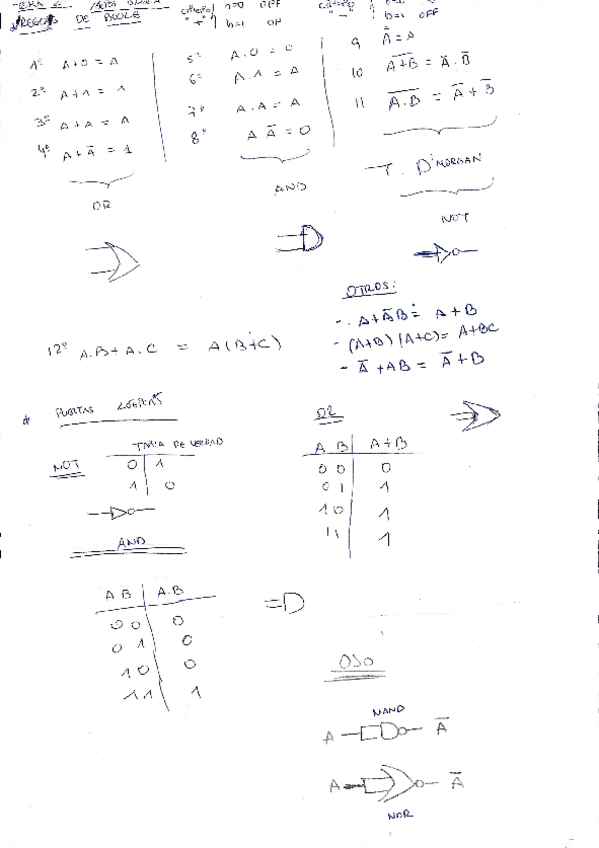 REGLAS DE BOOLE
b=1 ON
b=1 OFF
1º A+0 = A
2º A+1 = 1
3º A+A = A
4º A+A̅ = 1
OR
5º A.0 = 0
6º A.1 = A
7º A.A = A
8º A A̅ = 0
AND
9 A̿ = A
10 A̅+̅B̅ = A̅.B̅
11 A̅.̅B̅ = A̅+B̅
T. D'MORGAN
NOT
OTROS:
-. A+A̅B = A+B
- (A+B)(A+C) = A+BC
- A̅+AB = A̅+B
12º A.B+A.C = A(B+C)
PUERTAS LOGICAS
TABLA DE VERDAD
NOT 0 1
1 0
AND
A B A.B
0 0 0
0 1 0
1 0 0
1 1 1
OR
A B A+B
0 0 0
0 1 1
1 0 1
1 1 1
OJO
NAND
A A̅
A A̅
NOR